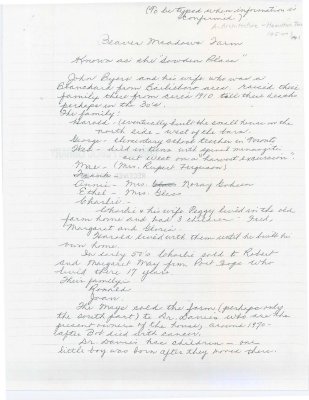 (To be typed when information is
confirmed?)
Architecture - Hamilton Twp
Beaver Meadows Farm
Known as the "Sowden Place"
John Byers and his wife who was a
Blanchard from Bailieboro area. raised their
family there from circa 1910 till their deaths
perhaps in the 30's.
The family:
Harold (eventually built the small house on the
north side - west of the barn.
George - elementary school teacher in Toronto
- died in teens with spinal meningitis
out west on a "harvest excursion".
Mae - (Mrs. Rupert Ferguson)
Annie - Mrs. Godson
Ethel - Mrs. Glass
Charlie -
Charlie & his wife Peggy lived in the old
farm home and had 3 children - Fred,
Margaret and Gloria.
Harold lived with them until he built his
own home.
In early 50's Charlie sold to Robert
and Margaret May from Port Hope who
lived there 17 years
Their family:
Ronald
Joan.
The Mays sold the farm (perhaps only
the south part) to Dr. Davies who are the
present owners of the house, around 1970 -
(after Bob died with cancer.
Dr. Davies has children - one
little boy was born after they moved there.